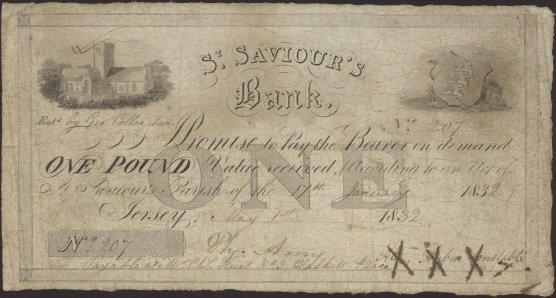 St. SAVIOUR'S
Bank.
Entd. by Geo. Collas Junr.
No. 207
I Promise to Pay the Bearer on demand
ONE POUND Value received, According to an Act of
St. Saviour's Parish of the 17th January 1832
ONE
Jersey, May 1st 1832.
No. 207
Payable at No. 3
Place
X X X